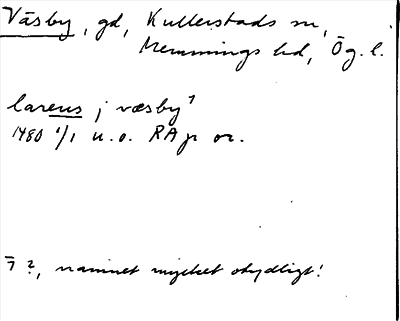 Väsby, gd, Kullerstads sn,
Memmings hd, Ög. l.
larens j væsby⁷
1480 1/1 u. o. RAp or.
⁷ ?, namnet mycket otydligt!